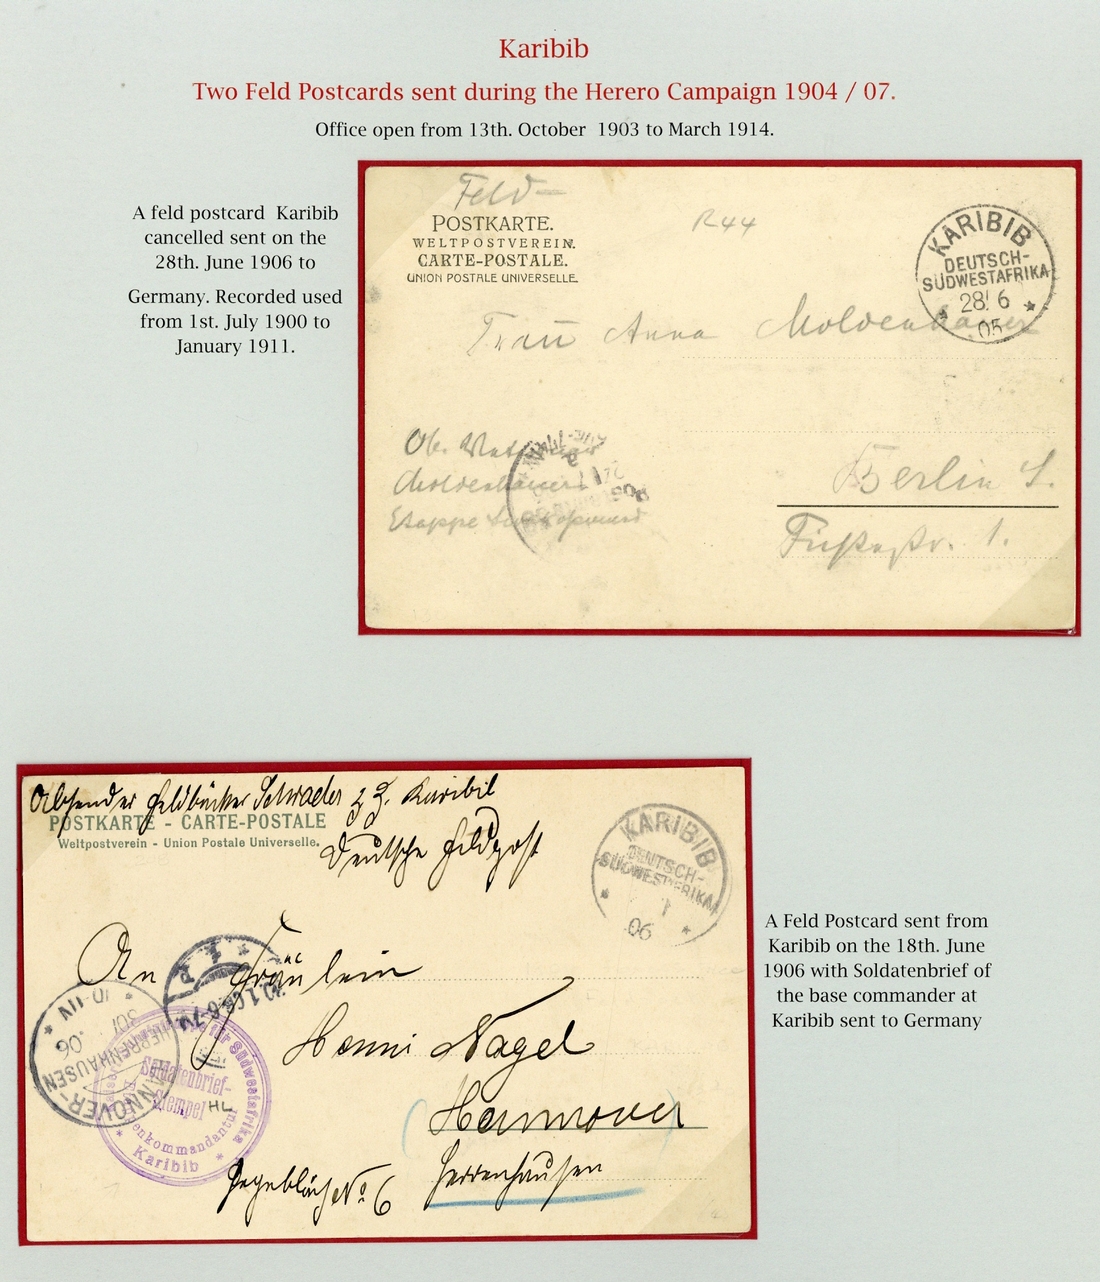 Karibib
Two Feld Postcards sent during the Herero Campaign 1904 / 07.
Office open from 13th. October 1903 to March 1914.
A feld postcard Karibib
cancelled sent on the
28th. June 1906 to
Germany. Recorded used
from 1st. July 1900 to
January 1911.
Feld-
POSTKARTE.
WELTPOSTVEREIN.
CARTE-POSTALE.
UNION POSTALE UNIVERSELLE.
R44
KARIBIB
DEUTSCH-
SÜDWESTAFRIKA
28/6
05
Frau Anna Moldenhauer
Ob.
Moldenhauer
Etappe
Berlin S.
1.
Absender Feldbäcker Schrader z. Z. Karibib
POSTKARTE - CARTE-POSTALE
Weltpostverein - Union Postale Universelle.
Deutsche Feldpost
KARIBIB
DEUTSCH-
SÜDWESTAFRIKA
06
An Fräulein
Henni Nagel
Hannover
Herrenhausen
No 6
HANNOVER-
HERRENHAUSEN
Soldatenbrief-
Stempel
HL
Karibib
A Feld Postcard sent from
Karibib on the 18th. June
1906 with Soldatenbrief of
the base commander at
Karibib sent to Germany